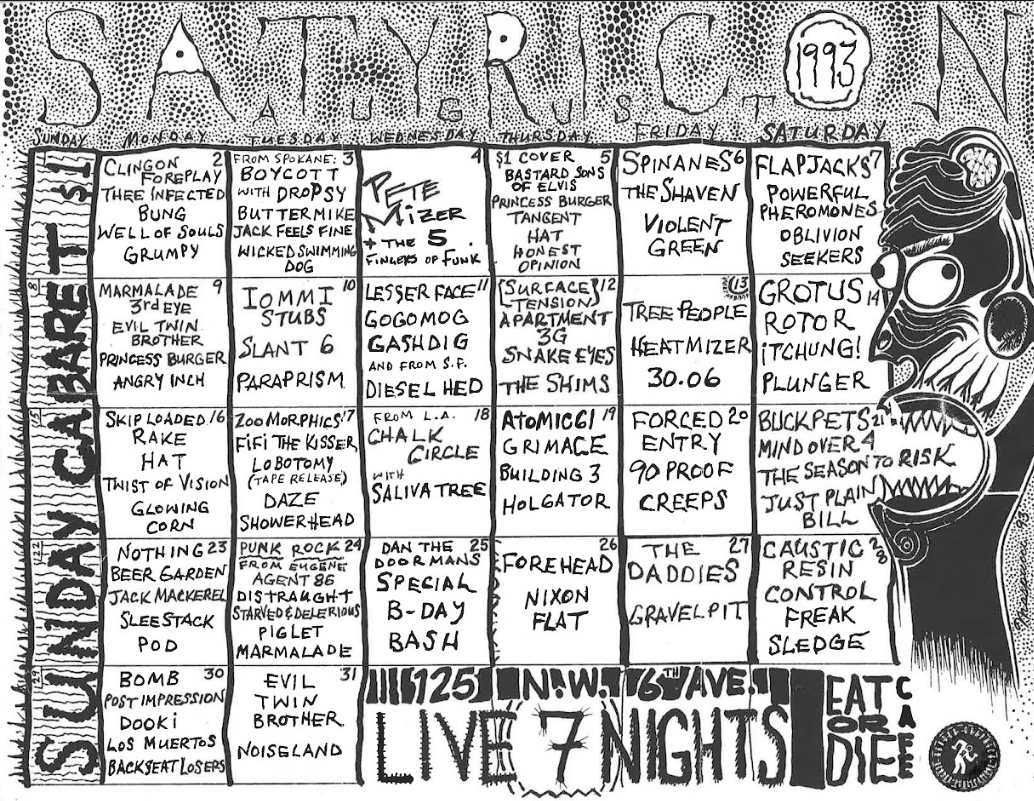 SATYRICON
1993
AUGUST
SUNDAY MONDAY TUESDAY WEDNESDAY THURSDAY FRIDAY SATURDAY
SUNDAY CABARET
$1
8
15
22
29
CLINGON 2
FOREPLAY
THEE INFECTED
BUNG
WELL OF SOULS
GRUMPY
FROM SPOKANE: 3
BOYCOTT
WITH DROPSY
BUTTERMIKE
JACK FEELS FINE
WICKED SWIMMING
DOG
4
PETE
MIZER
+ THE 5
FINGERS OF FUNK
$1 COVER 5
BASTARD SONS
OF ELVIS
PRINCESS BURGER
TANGENT
HAT
HONEST
OPINION
SPINANES 6
THE SHAVEN
VIOLENT
GREEN
FLAPJACKS 7
POWERFUL
PHEROMONES
OBLIVION
SEEKERS
MARMALADE 9
3rd EYE
EVIL TWIN
BROTHER
PRINCESS BURGER
ANGRY INCH
IOMMI 10
STUBS
SLANT 6
PARAPRISM
LESSER FACE 11
GOGOMOG
GASHDIG
AND FROM S.F.
DIESEL HED
{SURFACE} 12
TENSION
APARTMENT
3G
SNAKE EYES
THE SHIMS
13
TREE PEOPLE
HEATMIZER
30.06
GROTUS 14
ROTOR
¡TCHUNG!
PLUNGER
SKIPLOADED 16
RAKE
HAT
TWIST OF VISION
GLOWING
CORN
ZOOMORPHICS 17
FIFI THE KISSER
LOBOTOMY
(TAPE RELEASE)
DAZE
SHOWERHEAD
FROM L.A. 18
CHALK
CIRCLE
WITH
SALIVA TREE
ATOMIC 61 19
GRIMACE
BUILDING 3
HOLGATOR
FORCED 20
ENTRY
90 PROOF
CREEPS
BUCKPETS 21
MIND OVER 4
THE SEASON TO RISK
JUST PLAIN
BILL
NOTHING 23
BEER GARDEN
JACK MACKEREL
SLEESTACK
POD
PUNK ROCK 24
FROM EUGENE
AGENT 86
DISTRAUGHT
STARVED & DELERIOUS
PIGLET
MARMALADE
DAN THE 25
DOORMANS
SPECIAL
B-DAY
BASH
26
FOREHEAD
NIXON
FLAT
THE 27
DADDIES
GRAVELPIT
CAUSTIC 28
RESIN
CONTROL
FREAK
SLEDGE
BOMB 30
POST IMPRESSION
DOOKI
LOS MUERTOS
BACKSEAT LOSERS
EVIL 31
TWIN
BROTHER
NOISELAND
125 N.W. 6TH AVE.
LIVE 7 NIGHTS
EAT
OR
DIE
CAFE